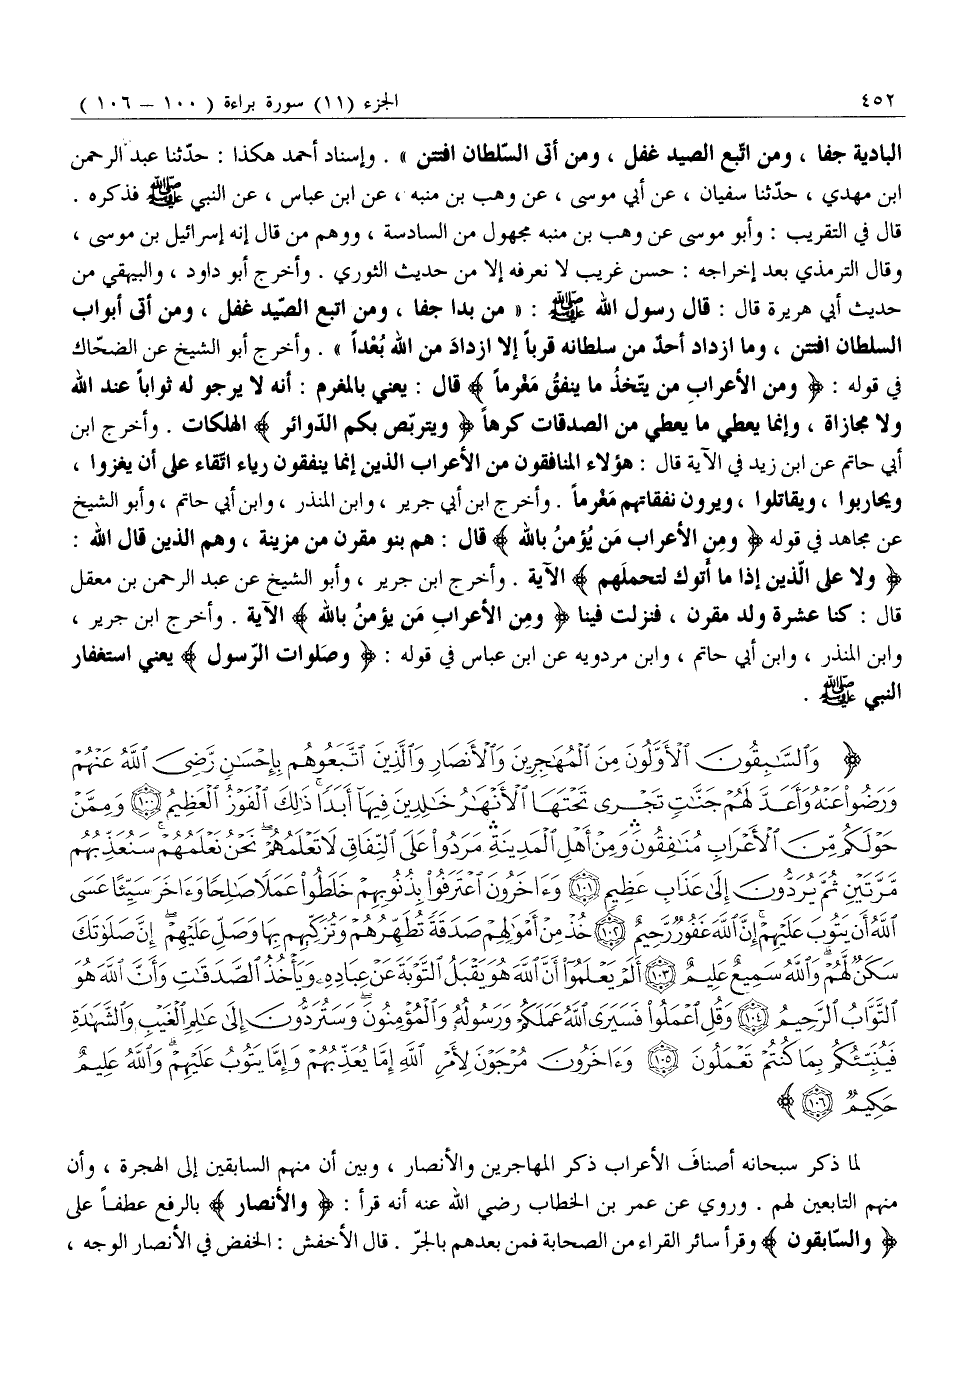 ٤٥٢ الجزء (١١) سورة براءة ( ١٠٠ – ١٠٦ )
البادية جفا ، ومن اتّبع الصيد غفل ، ومن أتى السّلطان افتتن » . وإسناد أحمد هكذا : حدّثنا عبد الرحمن
ابن مهدي ، حدّثنا سفيان ، عن أبي موسى ، عن وهب بن منبه ، عن ابن عباس ، عن النبي ﷺ فذكره .
قال في التقريب : وأبو موسى عن وهب بن منبه مجهول من السادسة ، ووهم من قال إنه إسرائيل بن موسى ،
وقال الترمذي بعد إخراجه : حسن غريب لا نعرفه إلا من حديث الثوري . وأخرج أبو داود ، والبيهقي من
حديث أبي هريرة قال : قال رسول الله ﷺ : « من بدا جفا ، ومن اتبع الصّيد غفل ، ومن أتى أبواب
السلطان افتتن ، وما ازداد أحدٌ من سلطانه قرباً إلا ازدادَ من الله بُعْداً » . وأخرج أبو الشيخ عن الضحّاك
في قوله : ﴿ ومن الأعرابِ من يتّخذُ ما ينفقُ مَغْرماً ﴾ قال : يعني بالمغرم : أنه لا يرجو له ثواباً عند الله
ولا مجازاة ، وإنما يعطي ما يعطي من الصدقات كرهاً ﴿ ويتربّص بكم الدّوائر ﴾ الهلكات . وأخرج ابن
أبي حاتم عن ابن زيد في الآية قال : هؤلاء المنافقون من الأعراب الذين إنما ينفقون رياء اتّقاء على أن يغزوا ،
ويحاربوا ، ويقاتلوا ، ويرون نفقاتهم مَغْرماً . وأخرج ابن أبي جرير ، وابن المنذر ، وابن أبي حاتم ، وأبو الشيخ
عن مجاهد في قوله ﴿ ومِن الأعراب مَن يُؤمنُ بالله ﴾ قال : هم بنو مقرن من مزينة ، وهم الذين قال الله :
﴿ ولا على الّذين إذا ما أَتوك لتحملَهم ﴾ الآية . وأخرج ابن جرير ، وأبو الشيخ عن عبد الرحمن بن معقل
قال : كنا عشرة ولد مقرن ، فنزلت فينا ﴿ ومِن الأعرابِ مَن يؤمنُ بالله ﴾ الآية . وأخرج ابن جرير ،
وابن المنذر ، وابن أبي حاتم ، وابن مردويه عن ابن عباس في قوله : ﴿ وصَلوات الرّسول ﴾ يعني استغفار
النبي ﷺ .
﴿ وَٱلسَّٰبِقُونَ ٱلْأَوَّلُونَ مِنَ ٱلْمُهَٰجِرِينَ وَٱلْأَنصَارِ وَٱلَّذِينَ ٱتَّبَعُوهُم بِإِحْسَٰنٍ رَّضِىَ ٱللَّهُ عَنْهُمْ
وَرَضُوا۟ عَنْهُ وَأَعَدَّ لَهُمْ جَنَّٰتٍ تَجْرِى تَحْتَهَا ٱلْأَنْهَٰرُ خَٰلِدِينَ فِيهَآ أَبَدًا ۚ ذَٰلِكَ ٱلْفَوْزُ ٱلْعَظِيمُ ﴿١٠٠﴾ وَمِمَّنْ
حَوْلَكُم مِّنَ ٱلْأَعْرَابِ مُنَٰفِقُونَ ۖ وَمِنْ أَهْلِ ٱلْمَدِينَةِ ۖ مَرَدُوا۟ عَلَى ٱلنِّفَاقِ لَا تَعْلَمُهُمْ ۖ نَحْنُ نَعْلَمُهُمْ ۚ سَنُعَذِّبُهُم
مَّرَّتَيْنِ ثُمَّ يُرَدُّونَ إِلَىٰ عَذَابٍ عَظِيمٍ ﴿١٠١﴾ وَءَاخَرُونَ ٱعْتَرَفُوا۟ بِذُنُوبِهِمْ خَلَطُوا۟ عَمَلًا صَٰلِحًا وَءَاخَرَ سَيِّئًا عَسَى
ٱللَّهُ أَن يَتُوبَ عَلَيْهِمْ ۚ إِنَّ ٱللَّهَ غَفُورٌ رَّحِيمٌ ﴿١٠٢﴾ خُذْ مِنْ أَمْوَٰلِهِمْ صَدَقَةً تُطَهِّرُهُمْ وَتُزَكِّيهِم بِهَا وَصَلِّ عَلَيْهِمْ ۖ إِنَّ صَلَوٰتَكَ
سَكَنٌ لَّهُمْ ۗ وَٱللَّهُ سَمِيعٌ عَلِيمٌ ﴿١٠٣﴾ أَلَمْ يَعْلَمُوٓا۟ أَنَّ ٱللَّهَ هُوَ يَقْبَلُ ٱلتَّوْبَةَ عَنْ عِبَادِهِۦ وَيَأْخُذُ ٱلصَّدَقَٰتِ وَأَنَّ ٱللَّهَ هُوَ
ٱلتَّوَّابُ ٱلرَّحِيمُ ﴿١٠٤﴾ وَقُلِ ٱعْمَلُوا۟ فَسَيَرَى ٱللَّهُ عَمَلَكُمْ وَرَسُولُهُۥ وَٱلْمُؤْمِنُونَ ۖ وَسَتُرَدُّونَ إِلَىٰ عَٰلِمِ ٱلْغَيْبِ وَٱلشَّهَٰدَةِ
فَيُنَبِّئُكُم بِمَا كُنتُمْ تَعْمَلُونَ ﴿١٠٥﴾ وَءَاخَرُونَ مُرْجَوْنَ لِأَمْرِ ٱللَّهِ إِمَّا يُعَذِّبُهُمْ وَإِمَّا يَتُوبُ عَلَيْهِمْ ۗ وَٱللَّهُ عَلِيمٌ
حَكِيمٌ ﴿١٠٦﴾ ﴾
لما ذكر سبحانه أصنافَ الأعراب ذكر المهاجرين والأنصار ، وبين أن منهم السابقين إلى الهجرة ، وأن
منهم التابعين لهم . وروي عن عمر بن الخطاب رضي الله عنه أنه قرأ : ﴿ والأنصار ﴾ بالرفع عطفاً على
﴿ والسّابقون ﴾ وقرأ سائر القراء من الصحابة فمن بعدهم بالجرّ . قال الأخفش : الخفض في الأنصار الوجه ،